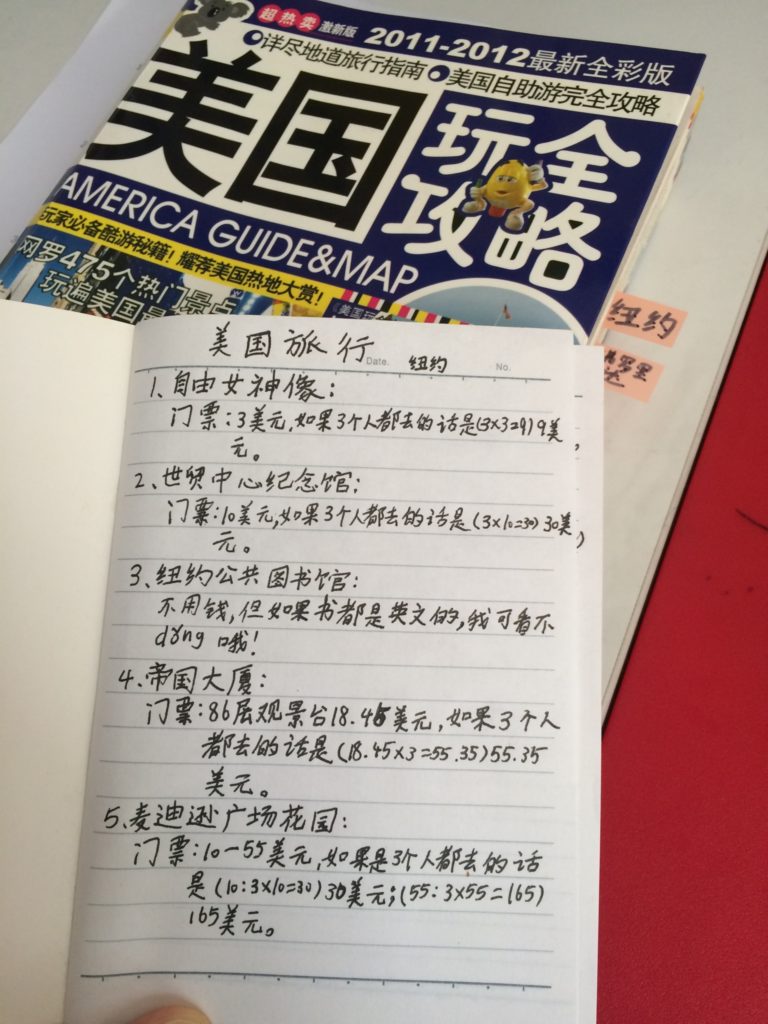 超热卖 激新版 2011-2012最新全彩版
详尽地道旅行指南 美国自助游完全攻略
美国
玩全
攻略
AMERICA GUIDE&MAP
玩家必备酷游秘籍！耀荐美国热地大赏！
网罗475个热门景点
玩遍美国最
美国玩
纽约
罗里
达
美国旅行
Date. 纽约 No.
1、自由女神像：
门票：3美元,如果3个人都去的话是(3×3=9)9美
元。
2、世贸中心纪念馆：
门票:10美元,如果3个人都去的话是(3×10=30)30美
元。
3、纽约公共图书馆：
不用钱,但如果书都是英文的,我可看不
dǒng哦！
4、帝国大厦：
门票:86层观景台18.45美元,如果3个人
都去的话是(18.45×3=55.35)55.35
美元。
5、麦迪逊广场花园：
门票:10-55美元,如果是3个人都去的话
是(10:3×10=30)30美元;(55:3×55=165)
165美元。